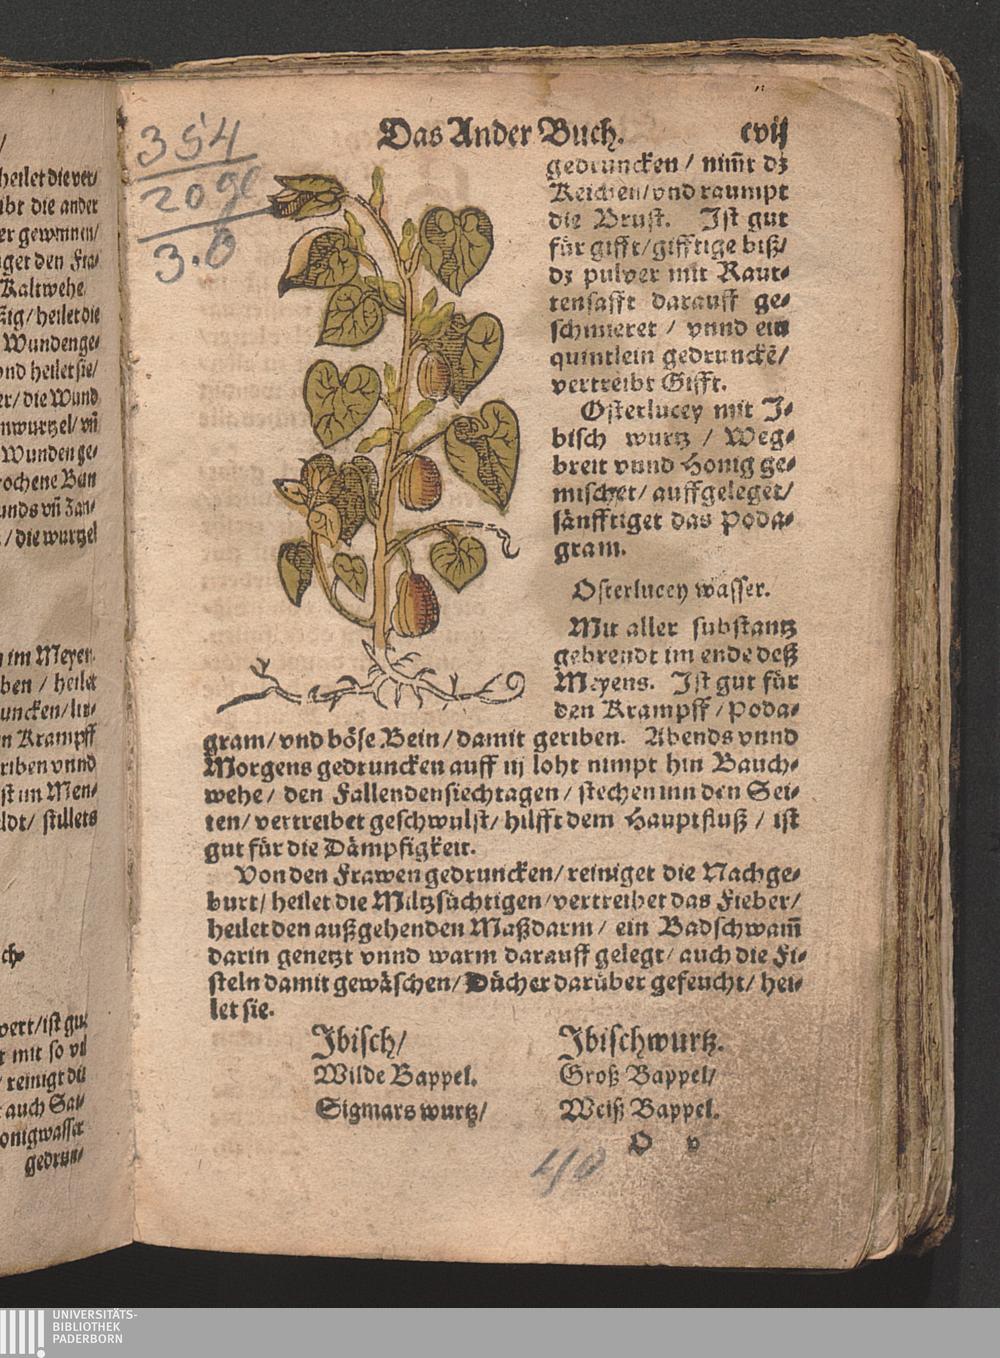 heilet die ver/
ibt die ander
er gewinnen/
iget den Fra/
Kaltwehe
tzig/heilet die
Wunden ge/
vnd heilet sie/
er/die Wund
nwurtzel/vñ
Wunden ge/
rochene Ban
unds vñ Zan/
/die wurtzel
im Meyen
ben/heilet
uncken/
n Krampff
riben vnnd
ist im Men/
ldt/stillets
ch/
wert/ist gut
r mit so vil
/reinigt die
auch Sal/
onigwasser
gedrun/
354
20 gl
3.0
Das Ander Buch. cvij
gedruncken/nim̄t dz
Keichen/vnd raumpt
die Brust. Ist gut
für gifft/gifftige biß/
dz pulver mit Raut-
tensafft darauff ge-
schmieret/vnnd ein
quintlein gedrunckẽ/
vertreibt Gifft.
Osterlucey mit J-
bisch wurtz/Weg-
breit vnnd Honig ge-
mischet/auffgeleget/
sänfftiget das Poda-
gram.
Osterlucey wasser.
Mit aller substantz
gebrendt im ende deß
Meyens. Ist gut für
den Krampff/Poda-
gram/vnd böse Bein/damit geriben. Abends vnnd
Morgens gedruncken auff iij loht nimpt hin Bauch-
wehe/den Fallendensiechtagen/stechen inn den Sei-
ten/vertreibet geschwulst/hilfft dem Hauptfluß/ist
gut für die Dämpfigkeit.
Von den Frawen gedruncken/reiniget die Nachge-
burt/heilet die Miltzsüchtigen/vertreibet das Fieber/
heilet den außgehenden Maßdarm/ein Badschwam̄
darin genetzt vnnd warm darauff gelegt/auch die Fi-
steln damit gewäschen/Dücher darüber gefeucht/hei-
let sie.
Jbisch/ Jbischwurtz.
Wilde Bappel. Groß Bappel/
Sigmars wurtz/ Weiß Bappel.
O v
40
UNIVERSITÄTS-
BIBLIOTHEK
PADERBORN